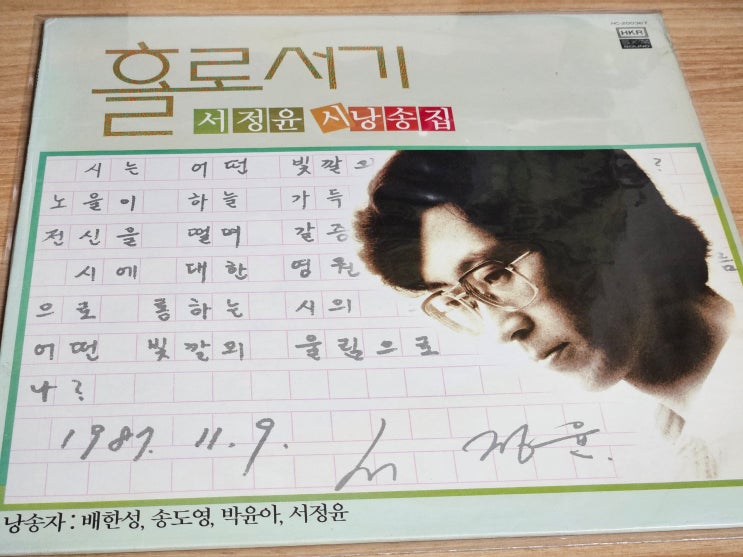 HC-200367
HKR
SOUND
홀로서기
서정윤 시낭송집
시는 어떤 빛깔의 ?
노을이 하늘 가득
전신을 떨며 갈증
시에 대한 영원 름
으로 통하는 시의
어떤 빛깔의 울림으로
나?
1987. 11. 9. 서 정윤.
낭송자 : 배한성, 송도영, 박윤아, 서정윤